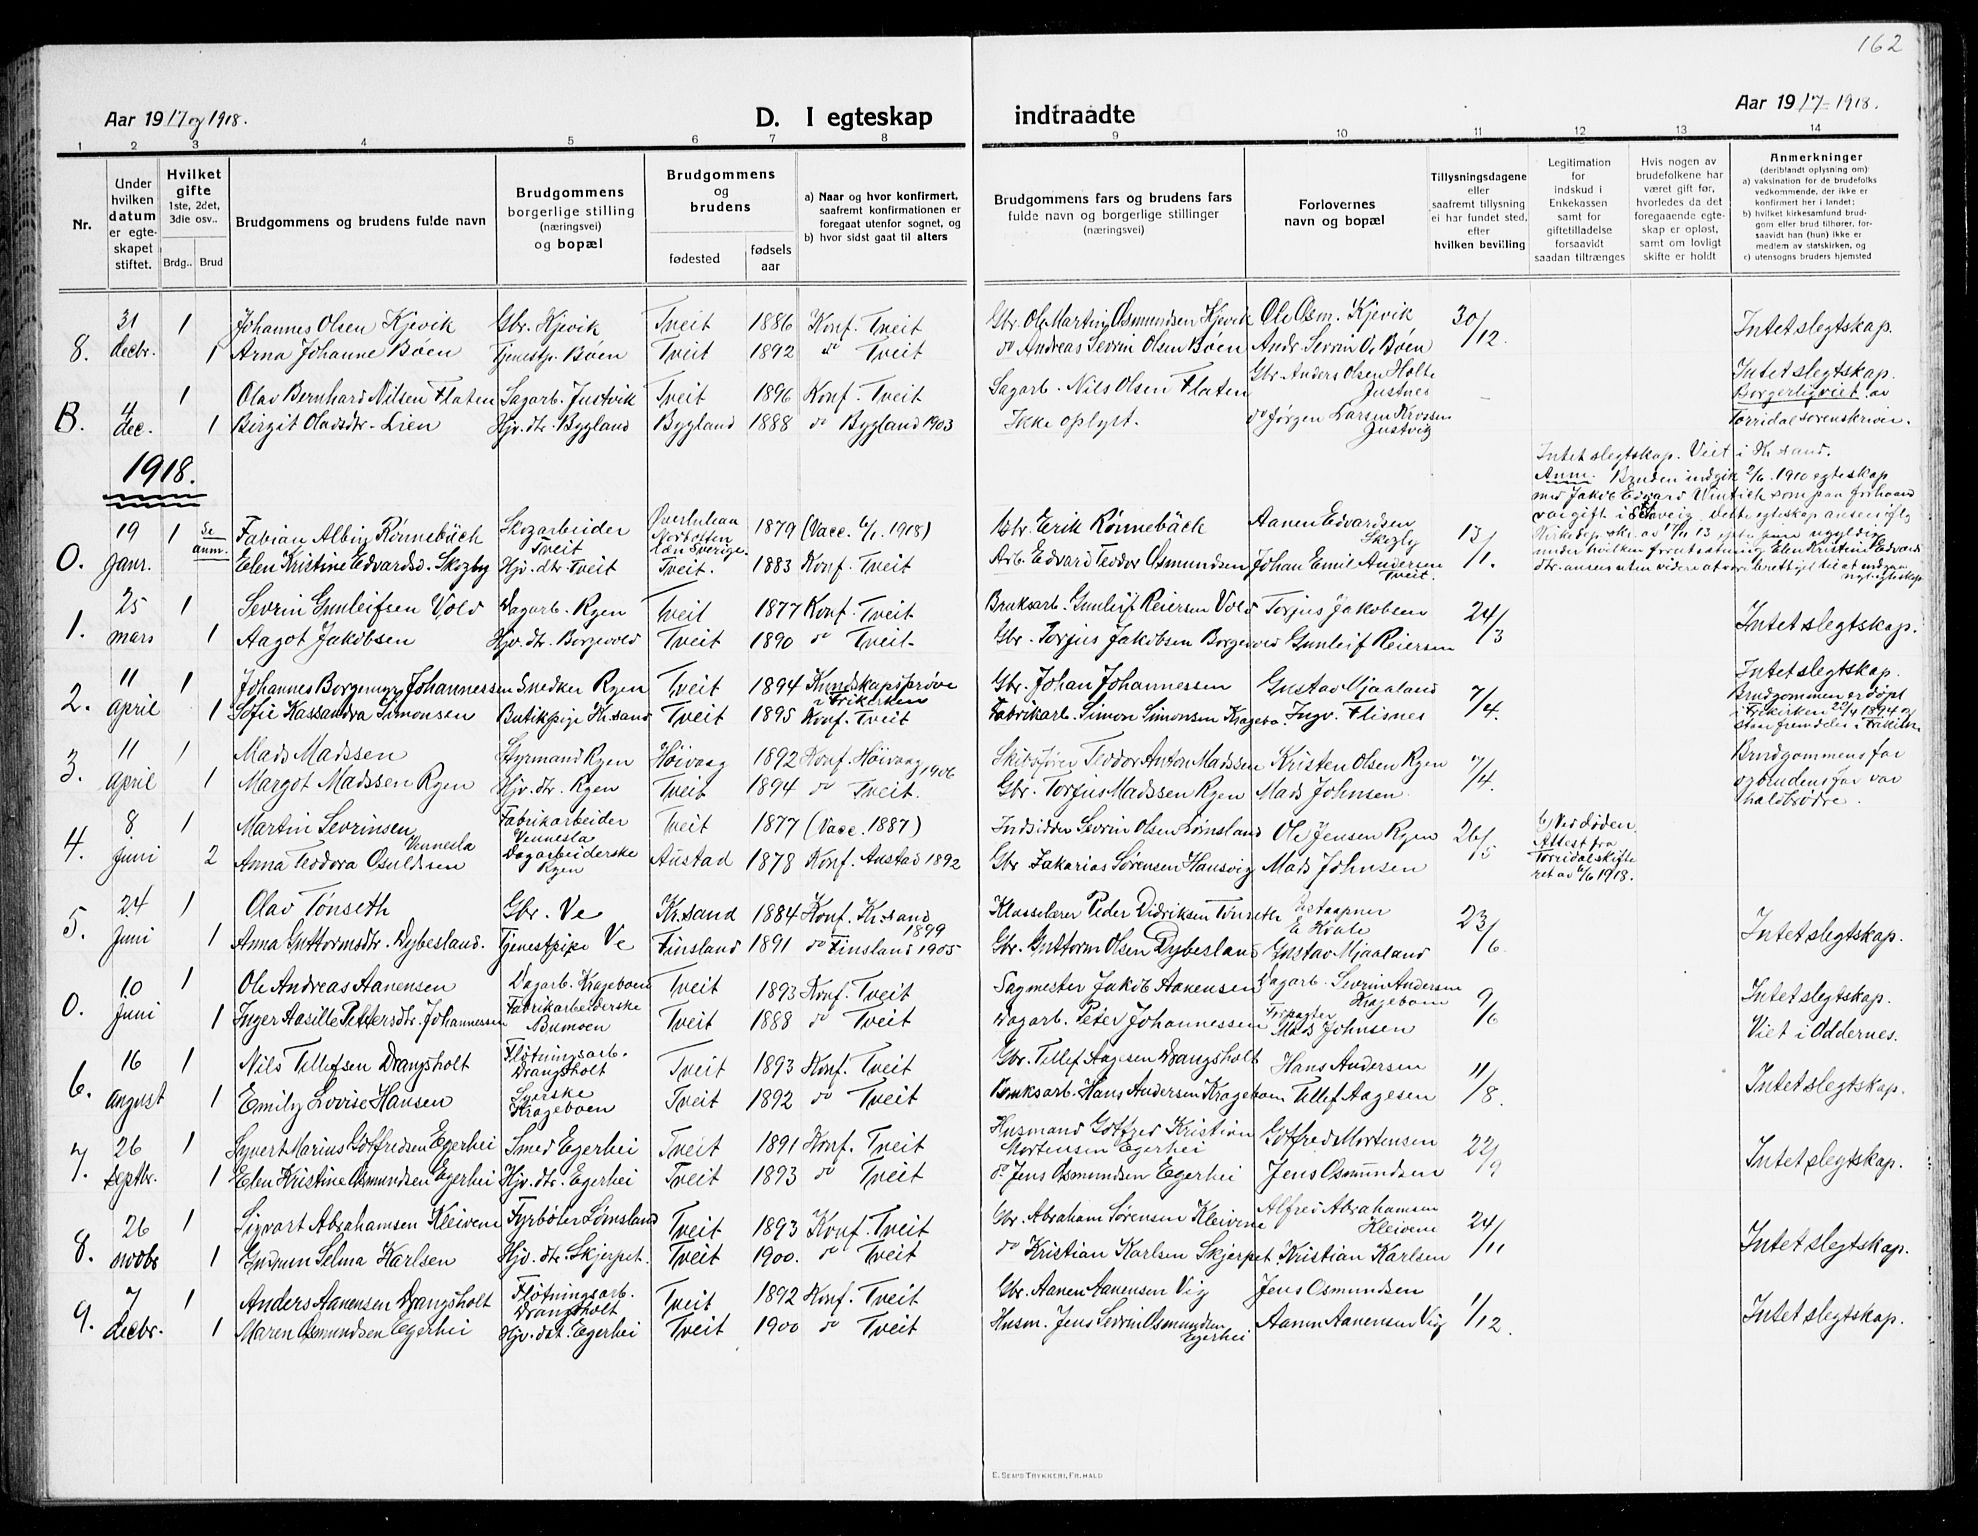 162
Aar 1917 og 1918.
D. I egteskap indtraadte
Aar 1917-1918.
1 2 3 4 5 6 7 8 9 10 11 12 13 14
Nr.
Under hvilken datum er egteskapet stiftet.
Hvilket gifte 1ste, 2det, 3die osv..
Brdg.. Brud
Brudgommens og brudens fulde navn
Brudgommens borgerlige stilling (næringsvei) og bopæl
Brudgommens og brudens
fødested
fødsels aar
a) Naar og hvor konfirmert, saafremt konfirmationen er foregaat utenfor sognet, og
b) hvor sidst gaat til alters
Brudgommens fars og brudens fars fulde navn og borgerlige stillinger (næringsvei)
Forlovernes navn og bopæl
Tillysningsdagene eller saafremt tillysning ei har fundet sted, efter hvilken bevilling
Legitimation for indskud i Enkekassen samt for giftetilladelse forsaavidt saadan tiltrænges
Hvis nogen av brudefolkene har været gift før, hvorledes da det foregaaende egteskap er opløst, samt om lovligt skifte er holdt
Anmerkninger (deriblandt oplysning om):
a) vaksination for de brudefolks vedkommende, der ikke er konfirmert her i landet;
b) hvilket kirkesamfund brudgom eller brud tilhører, forsaavidt han (hun) ikke er medlem av statskirken, og
c) utensogns bruders hjemsted
8. 31 decbr. 1 Johannes Olsen Kjevik Gbr. Kjevik Tveit 1886 Konf. Tveit Gbr. Ole Martin Osmundsen Kjevik Ole Osm. Kjevik 30/12 Intet slegtskap.
1 Arna Johanne Bøen Tjenestp. Bøen Tveit 1892 do Tveit do Andreas Sevrin Olsen Bøen Andr. Sevrin O. Bøen
B. 4 dec. 1 Olav Bernhard Nilsen Flaten Sagarb. Justvik Tveit 1896 Konf. Tveit Sagarb. Nils Olsen Flaten Gbr. Anders Olsen Holte Justnes - Intet slegtskap. Borgerlig viet av Torridal sorenskriver.
1 Birgit Olavsdtr. Lien Hjv. dtr. Bygland Bygland 1888 do Bygland 1903 Ikke oplyst. do Jørgen Larsen Krossen Justvig
1918.
Intet slegtskap. Viet i Kr.sand.
Anm. Bruden indgik 2/6 1910 egteskap
med Jakob Edvard som paa forhaand
var gift i dette egteskap ansees iflg
Kirkedep. skr. av 17/11 13 ugyldig
under hvilken forutsætning Elen Kristine Edvards
dtr. ansees uten videre at være berettiget til at indgaa
nyt egteskap
0. 19 Janr. 1 Se anm. Fabian Albin Rønnebäck Skogarbeider Tveit Norbotten län Sverige. 1879 (Vacc. 6/1 1918) Gbr. Erik Rønnebäck Aanen Edvardsen Skogby 13/1.
Elen Kristine Edvardsd. Skogby Hjv. dtr. Tveit Tveit. 1883 Konf. Tveit Arb. Edvard Teodor Osmundsen Johan Emil Andersen Tveit.
1. 25 mars 1 Sevrin Gunleifsen Vold Dagarb. Ryen Tveit 1877 Konf. Tveit Bruksarb. Gunleif Reiersen Vold Torjus Jakobsen 24/3 Intet slegtskap.
1 Aagot Jakobsen Hjv. dtr. Borgevold Tveit 1890 do Tveit Gbr. Torjus Jakobsen Borgevold Gunleif Reiersen
2. 11 april 1 Johannes Borgemyr Johannessen Snedker Ryen Tveit 1894 Kundskapsprøve i Frikirken Gbr. Johan Johannessen Gustav Mjaaland 7/4. Intet slegtskap. Brudgommen er døpt i Frikirken 29/4 1894 og staar fremdeles i Frikirken
1 Sofie Kassandra Simonsen Butikpige Kr.sand Tveit 1895 Konf. Tveit Fabrikarb. Simon Simonsen Kragebo. Ingv. Flisnes
3. 11 april 1 Mads Madssen Styrmand Ryen Høivaag 1892 Konf. Høivaag 1906 Skibsfører Teodor Anton Madssen Kristen Olsen Ryen 7/4. Brudgommens far og brudens far var halvbrødre.
1 Margot Madssen Ryen Hjv. dtr. Ryen Tveit 1894 do Tveit. Gbr. Torjus Madssen Ryen Mads Johnsen
4. 8. Juni 1 Martin Sevrinsen Vennesla Fabrikarbeider Vennesla Tveit 1877 (Vacc. 1887) Indsidder Sevrin Olsen Lømsland Ole Jensen Ryen 26/5 b) Ved døden Attest fra Torridal skifteret av 6/6 1918.
2 Anna Teodora Osuldsen Dagarbeiderske Ryen Austad 1878 Konf. Austad 1892 Gbr. Zakarias Sørensen Hausvig Mads Johnsen
5. 24 Juni 1 Olav Tønseth Gbr. Ve Kr.sand 1884 Konf. Kr.sand 1899 Klasselærer Peder Didriksen Tønseth 23/6 Intet slegtskap.
1 Anna Guttormsdtr. Dybesland. Tjenestpike Ve Finsland 1891 do Finsland 1905 Gbr. Guttorm Olsen Dybesland Gustav Mjaaland
0. 10 Juni 1 Ole Andreas Aanensen Dagarb. Krageboen Tveit 1893 Konf. Tveit Sagmester Jakob Aanensen Dagarb. Sevrin Andersen Krageboen 9/6 Intet slegtskap.
1 Inger Aasille Pettersdtr. Johannessen Fabrikarbeiderske Bumoen Tveit 1888 do Tveit Dagarb. Peter Johannessen Forpagter Mads Johnsen Viet i Oddernes.
6. 16 august 1 Nils Tellefsen Drangsholt Fløtningsarb. Drangsholt Tveit 1893 Konf. Tveit Gbr. Tellef Aagesen Drangsholt Hans Andersen 11/8. Intet slegtskap.
1 Emily Lovise Hansen Syerske Krageboen Tveit 1892 do Tveit Bruksarb. Hans Andersen Krageboen Tellef Aagesen
7. 26 septbr. 1 Syvert Marius Gotfredsen Egerhei Smed Egerhei Tveit 1891 Konf. Tveit Husmand Gotfred Kristian Mortensen Egerhei Gotfred Mortensen 22/9 Intet slegtskap.
1 Elen Kristine Osmundsen Egerhei Hjv. dtr. Egerhei Tveit 1893 do Tveit do Jens Osmundsen Egerhei Jens Osmundsen
8. 26 novbr 1 Sigvart Abrahamsen Kleivene Fyrbøter Lømsland Tveit 1893 Konf. Tveit Gbr. Abraham Sørensen Kleivene Alfred Abrahamsen Kleivene 24/11 Intet slegtskap.
1 Gudrun Selma Karlsen Hjv. dtr. Skjerpet. Tveit 1900. do Tveit do Kristian Karlsen Skjerpet. Kristian Karlsen
9. 7 decbr. 1 Anders Aanensen Drangsholt Fløtningsarb. Drangsholt Tveit 1892 Konf. Tveit Gbr. Aanen Aanensen Vig Jens Osmundsen 1/12. Intet slegtskap.
1 Maren Osmundsen Egerhei Hjv. dat. Egerhei Tveit 1900 do Tveit Husm. Jens Sevrin Osmundsen Egerhei Aanen Aanensen Vig
E. SEM'S TRYKKERI, FR.HALD